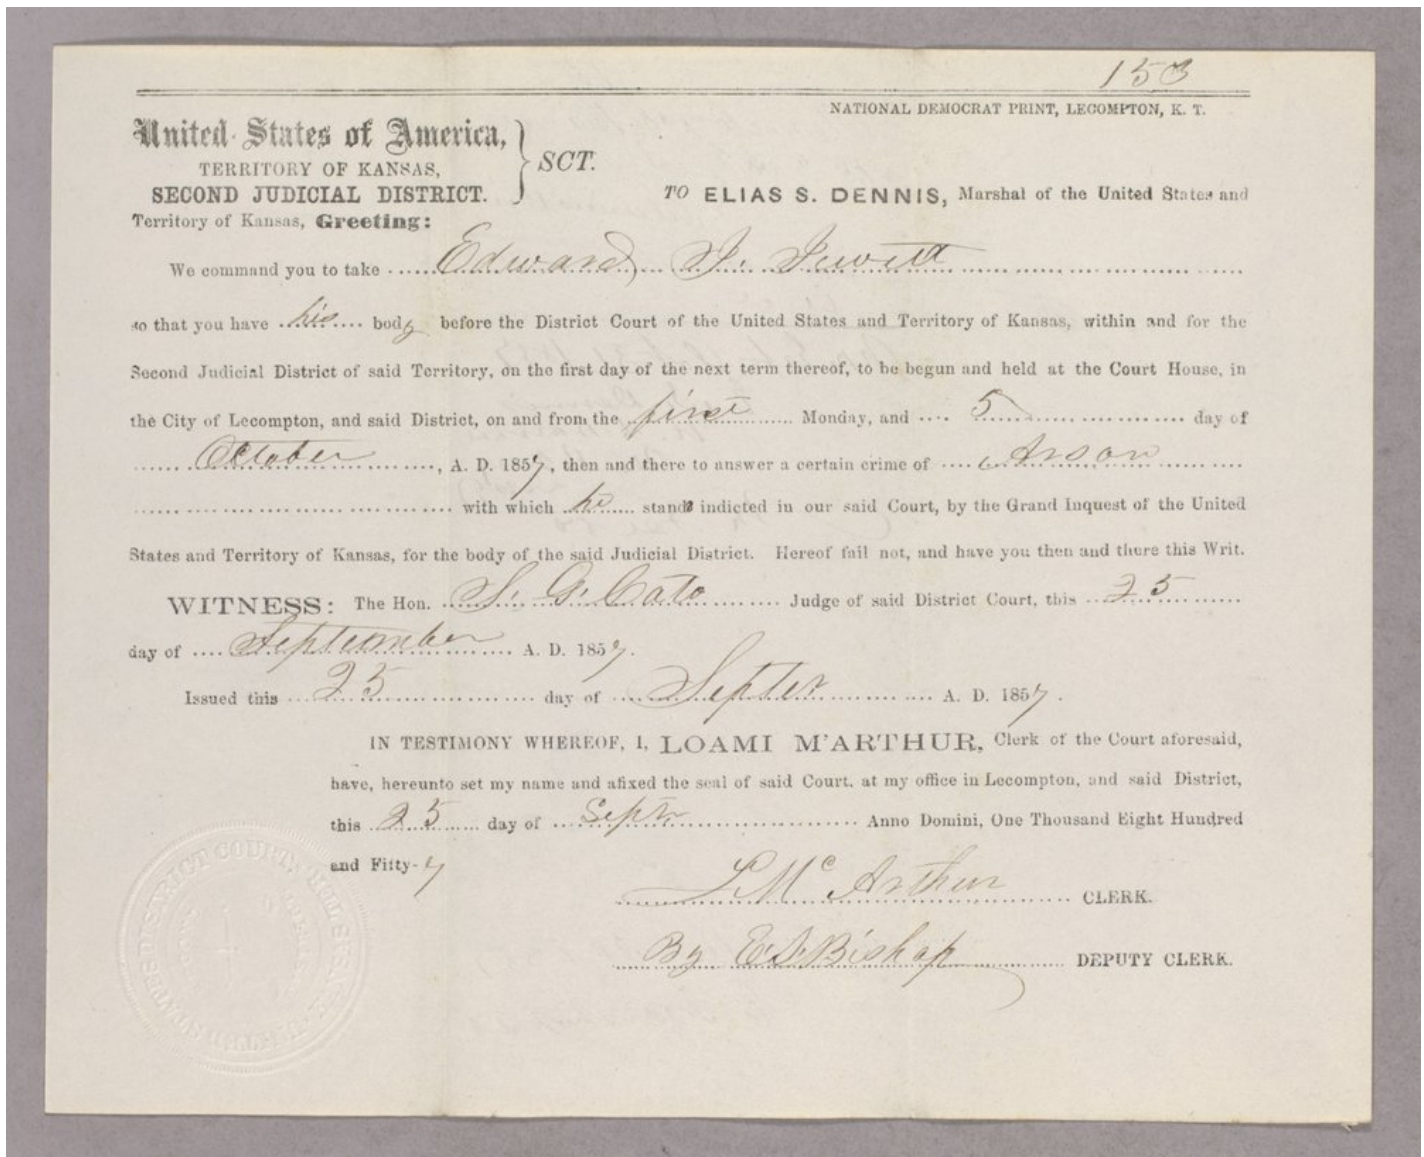 153
NATIONAL DEMOCRAT PRINT, LECOMPTON, K. T.
United States of America,
TERRITORY OF KANSAS,
SECOND JUDICIAL DISTRICT.
SCT.
TO ELIAS S. DENNIS, Marshal of the United States and
Territory of Kansas, Greeting:
We command you to take Edward J. Jewett
so that you have his body before the District Court of the United States and Territory of Kansas, within and for the
Second Judicial District of said Territory, on the first day of the next term thereof, to be begun and held at the Court House, in
the City of Lecompton, and said District, on and from the first Monday, and 5 day of
October, A. D. 1857, then and there to answer a certain crime of Arson
with which he stands indicted in our said Court, by the Grand Inquest of the United
States and Territory of Kansas, for the body of the said Judicial District. Hereof fail not, and have you then and there this Writ.
WITNESS: The Hon. S. G. Cato Judge of said District Court, this 25
day of September A. D. 1857.
Issued this 25 day of Septer A. D. 1857.
IN TESTIMONY WHEREOF, I, LOAMI M'ARTHUR, Clerk of the Court aforesaid,
have, hereunto set my name and afixed the seal of said Court, at my office in Lecompton, and said District,
this 25 day of Septr Anno Domini, One Thousand Eight Hundred
and Fifty-7
L Mc Arthur CLERK.
By E S Bishop DEPUTY CLERK.
DISTRICT COURT